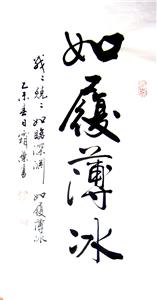 如履薄冰
战々兢々如临深渊 如履薄冰
乙未春日